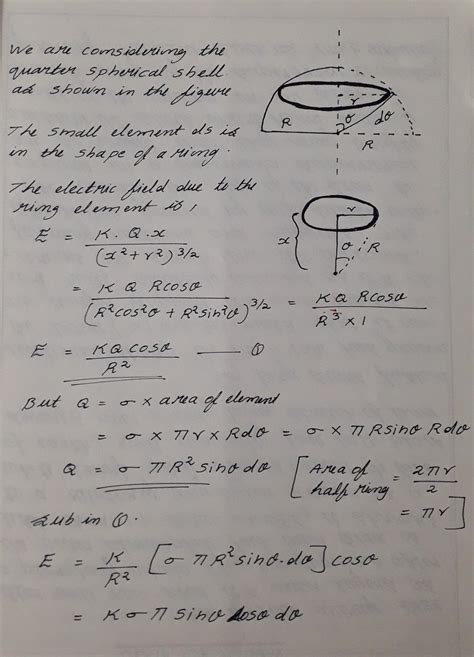 We are considering the
quarter spherical shell
as shown in the figure
r
R
θ
dθ
R
The small element ds is
in the shape of a ring.
The electric field due to the
ring element is,
r
x
θ
R
E = K.Q.x / (x²+r²)^3/2
= KQ Rcosθ / (R²cos²θ + R²sin²θ)^3/2 = KQ Rcosθ / R³ × 1
E = KQ cosθ / R² —— ①
But Q = σ × area of element
= σ × πr × Rdθ = σ × πRsinθ Rdθ
Q = σ πR² sinθ dθ
[Area of half ring = 2πr / 2 = πr]
Sub in ①.
E = K / R² [σ πR² sinθ.dθ] cosθ
= KσΠ sinθ cosθ dθ